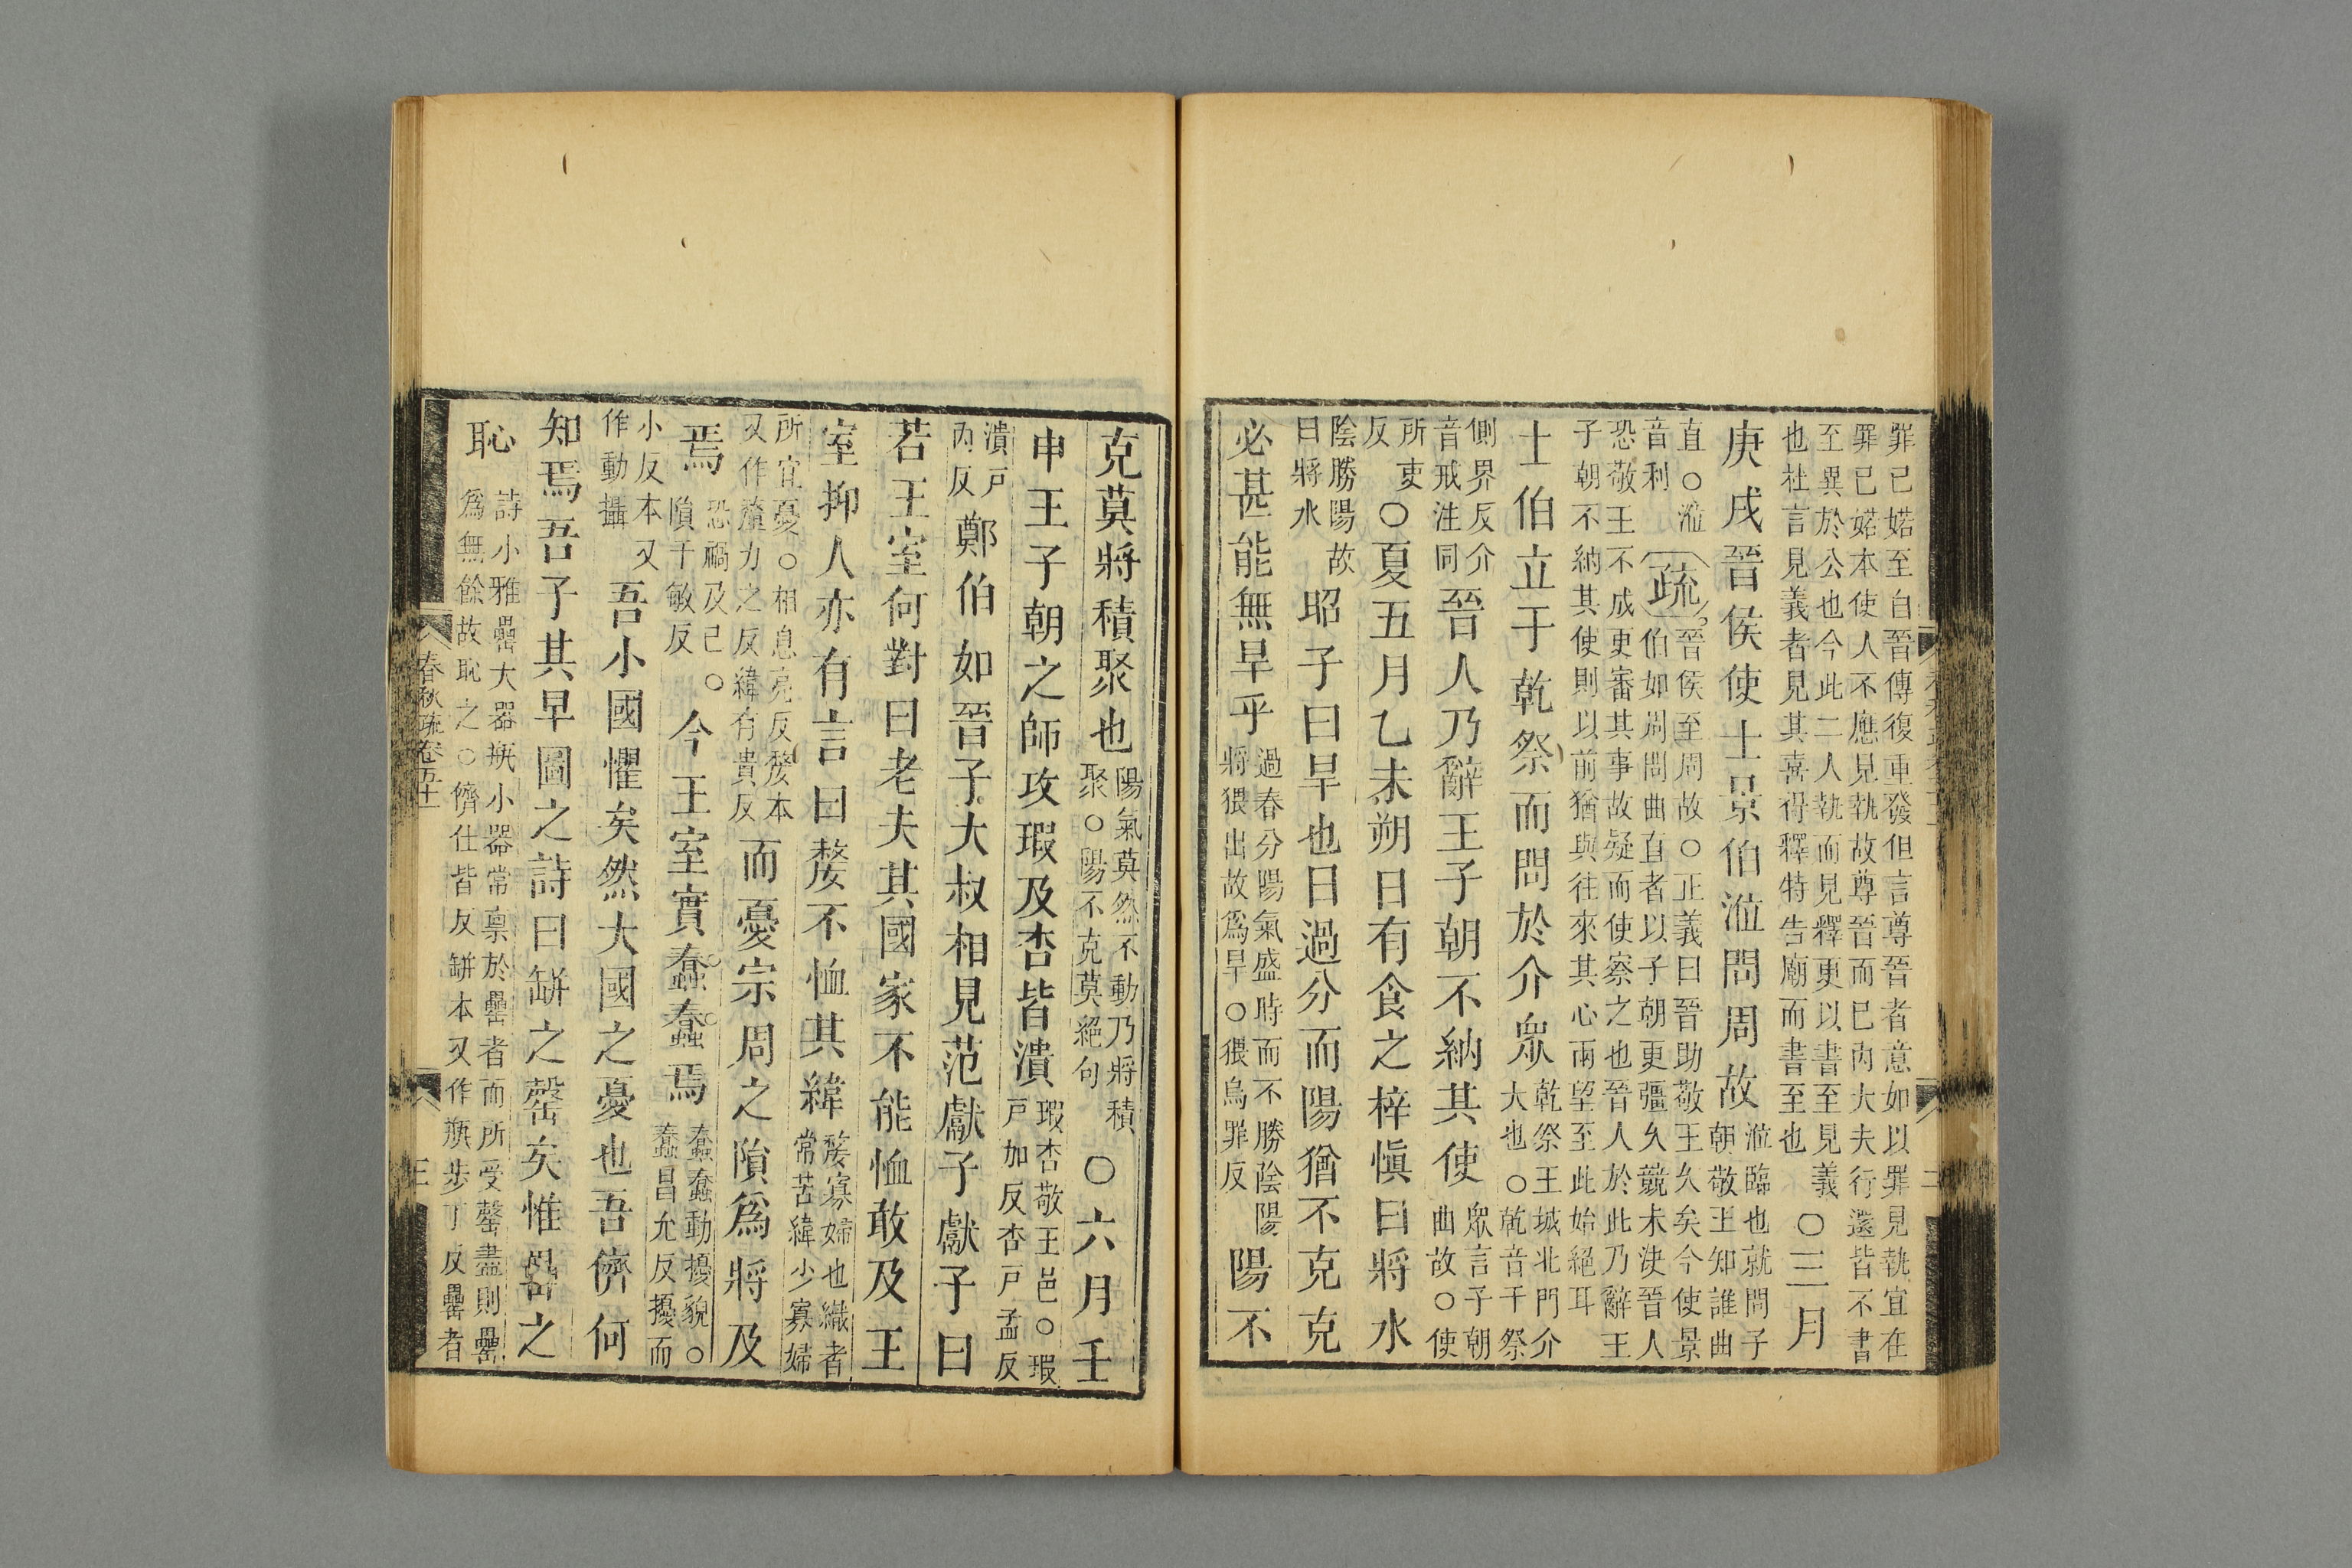 罪已婼至自晉傳復重發但言尊晉者意如以罪見執宜在
罪已婼本使人不應見執故尊晉而已丙大夫行還皆不書
至異於公也今此二人執而見釋更以書至見義
也社言見義者見其喜得釋特告廟而書至也
○三月
庚戌晉侯使士景伯涖問周故
涖臨也就問子
朝敬王知誰曲
直○涖
音利
疏
晉侯至周故○正義曰晉助敬王久矣今使景
伯如周問曲直者以子朝更彊久競未決晉人
恐敬王不成更審其事故疑而使察之也晉人於此乃辭王
子朝不納其使則以前猶與往來其心兩望至此始絕耳
士伯立于乾祭而問於介眾
乾祭王城北門介
大也○乾音干祭
側界反介
音戒注同
晉人乃辭王子朝不納其使
眾言子朝
曲故○使
所吏
反
○夏五月乙未朔日有食之梓慎曰將水
陰勝陽故
曰將水
昭子曰旱也日過分而陽猶不克克
必甚能無旱乎
過春分陽氣盛時而不勝陰陽
將猥出故為旱○猥烏罪反
陽不
克莫將積聚也
陽氣莫然不動乃將積
聚○陽不克莫絕句
○六月壬
申王子朝之師攻瑕及杏皆潰
瑕杏敬王邑○瑕
戸加反杏戸孟反
潰戸
內反
鄭伯如晉子大叔相見范獻子獻子曰
若王室何對曰老夫其國家不能恤敢及王
室抑人亦有言曰嫠不恤其緯
嫠寡婦也織者
常苦緯少寡婦
所宜憂○相息亮反嫠本
又作𨤲力之反緯有貴反
而憂宗周之隕為將及
焉
恐禍及己○
隕于敏反
今王室實蠢蠢焉
蠢蠢動擾貌○
蠢昌允反擾而
小反本又
作動攝
吾小國懼矣然大國之憂也吾儕何
知焉吾子其早圖之詩曰缾之罄矣惟罍之
恥
詩小雅罍大器瓶小器常稟於罍者而所受罄盡則罍
為無餘故恥之○儕仕皆反缾本又作瓶步丁反罍者
春秋疏卷五十一
三